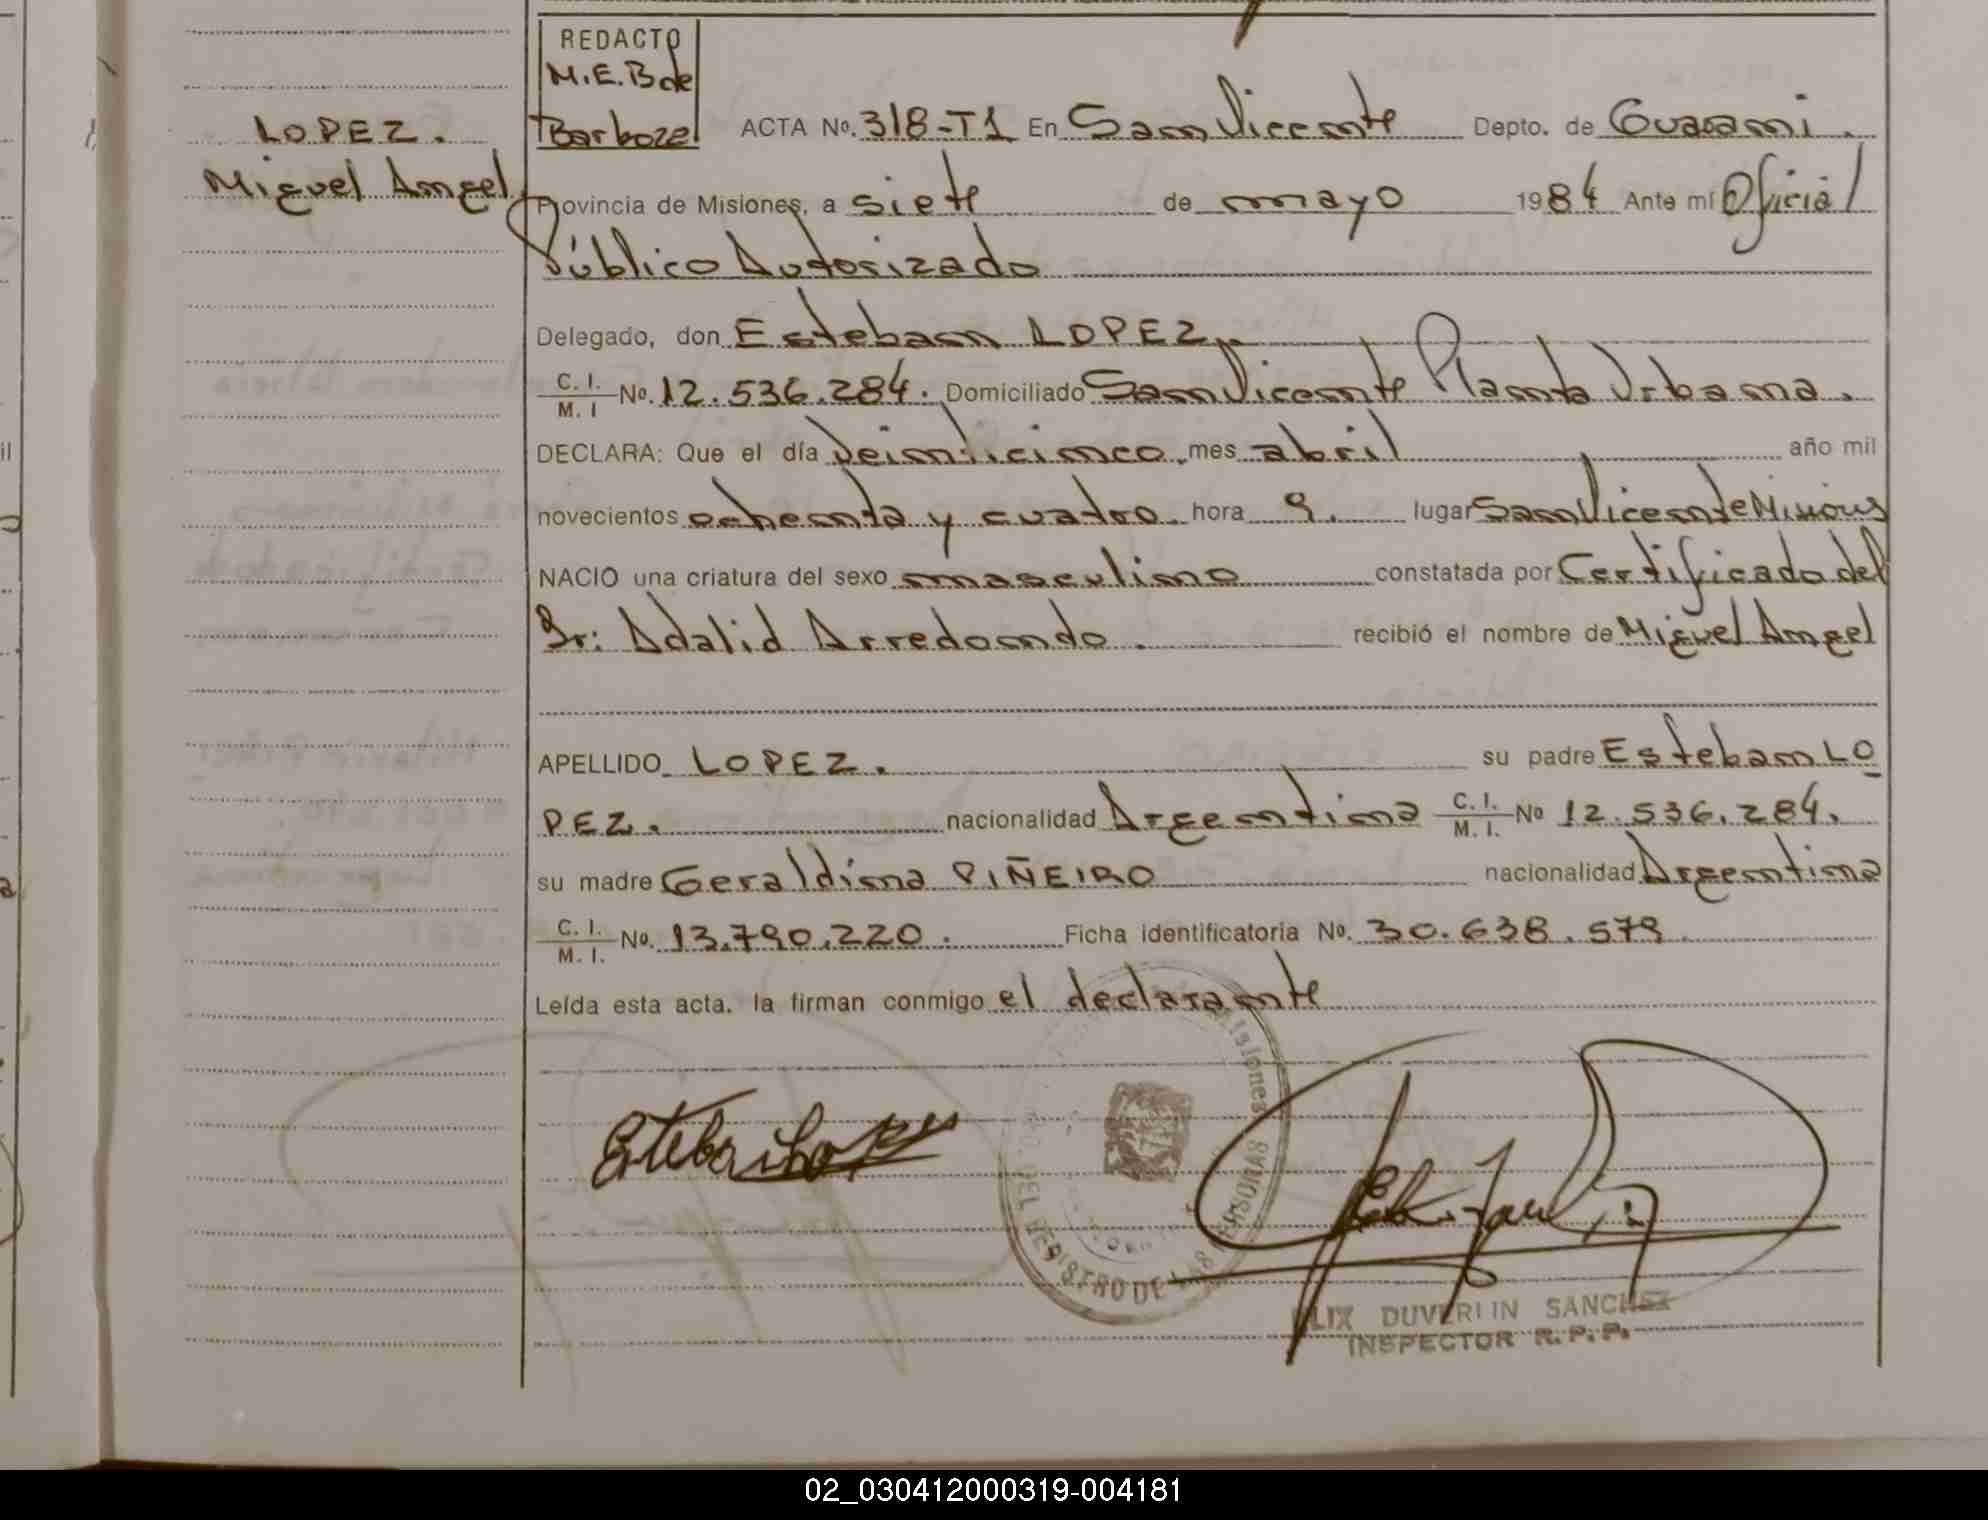 REDACTO
M.E.B de
Barboza
LOPEZ.
Miguel Angel
ACTA No. 318-T1 En San Vicente Depto. de Guarani.
Provincia de Misiones, a siete de mayo 1984 Ante mí Oficial
Público Autorizado
Delegado, don Esteban LOPEZ.
C. I. / M. I No. 12.536.284. Domiciliado San Vicente Planta Urbana.
DECLARA: Que el día veinticinco mes abril año mil
novecientos ochenta y cuatro. hora 9. lugar San Vicente Misiones
NACIO una criatura del sexo masculino constatada por Certificado del
Dr: Adalid Arredondo. recibió el nombre de Miguel Angel
APELLIDO LOPEZ. su padre Esteban LO
PEZ. nacionalidad Argentina C. I. / M. I. No 12.536.284.
su madre Geraldina PIÑEIRO nacionalidad Argentina
C. I. / M. I. No. 13.790.220. Ficha identificatoria No. 30.638.579.
Leída esta acta. la firman conmigo el declarante
Esteban Lopez
Misiones
DEL REGISTRO DE LAS PERSONAS
DUVERLIN SANCHEZ
INSPECTOR R.P.P.
02_030412000319-004181